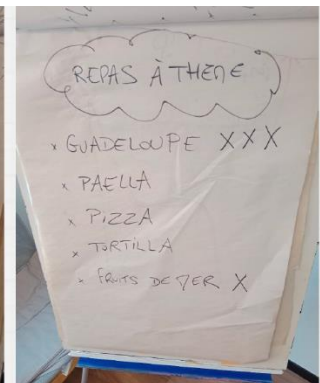 REPAS À THEME
x GUADELOUPE X X X
x PAELLA
x PIZZA
x TORTILLA
x FRUITS DE MER X